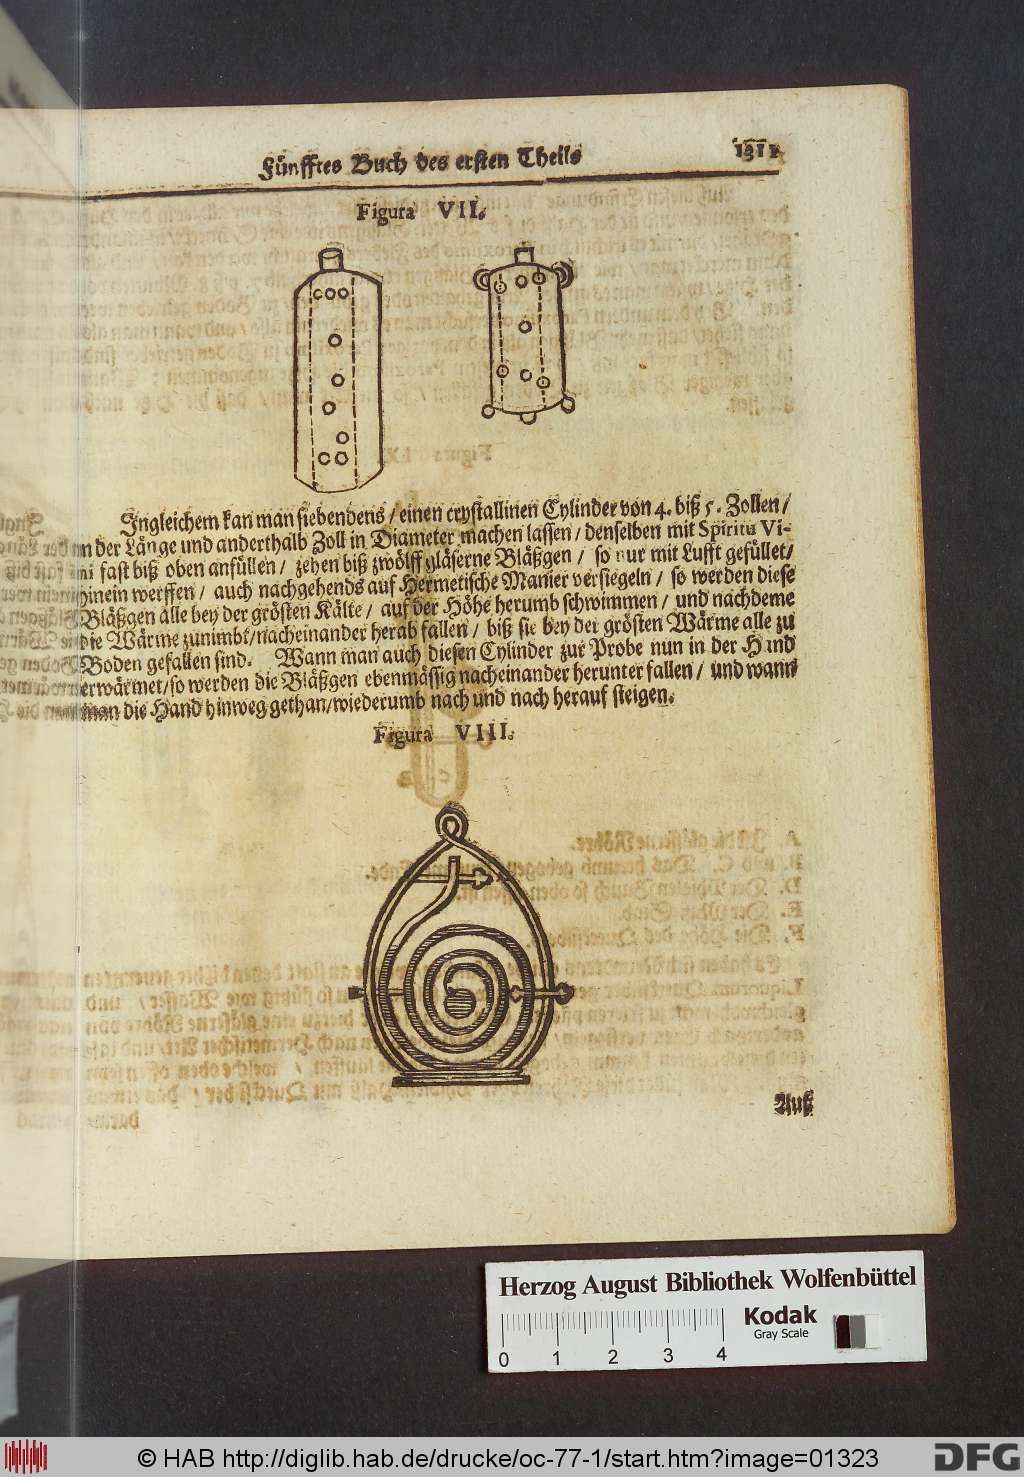 Fünfftes Buch des ersten Theils 1311
Figura VII.
Ingleichem kan man siebendens / einen crystallinen Cylinder von 4. biß 5. Zollen /
in der Länge und anderthalb Zoll in Diameter machen lassen / denselben mit Spiritu Vi-
ni fast biß oben anfüllen / zehen biß zwölff gläserne Bläßgen / so nur mit Lufft gefüllet /
hinein werffen / auch nachgehends auf Hermetische Manier versiegeln / so werden diese
Bläßgen alle bey der grösten Kälte / auf der Höhe herumb schwimmen / und nachdeme
die Wärme zunimbt / nacheinander herab fallen / biß sie bey der grösten Wärme alle zu
Boden gefallen sind. Wann man auch diesen Cylinder zur Probe nun in der Hand
erwärmet / so werden die Bläßgen ebenmässig nacheinander herunter fallen / und wann
man die Hand hinweg gethan / wiederumb nach und nach herauf steigen.
Figura VIII.
Auß
Herzog August Bibliothek Wolfenbüttel
Kodak
Gray Scale
0 1 2 3 4
© HAB http://diglib.hab.de/drucke/oc-77-1/start.htm?image=01323
DFG